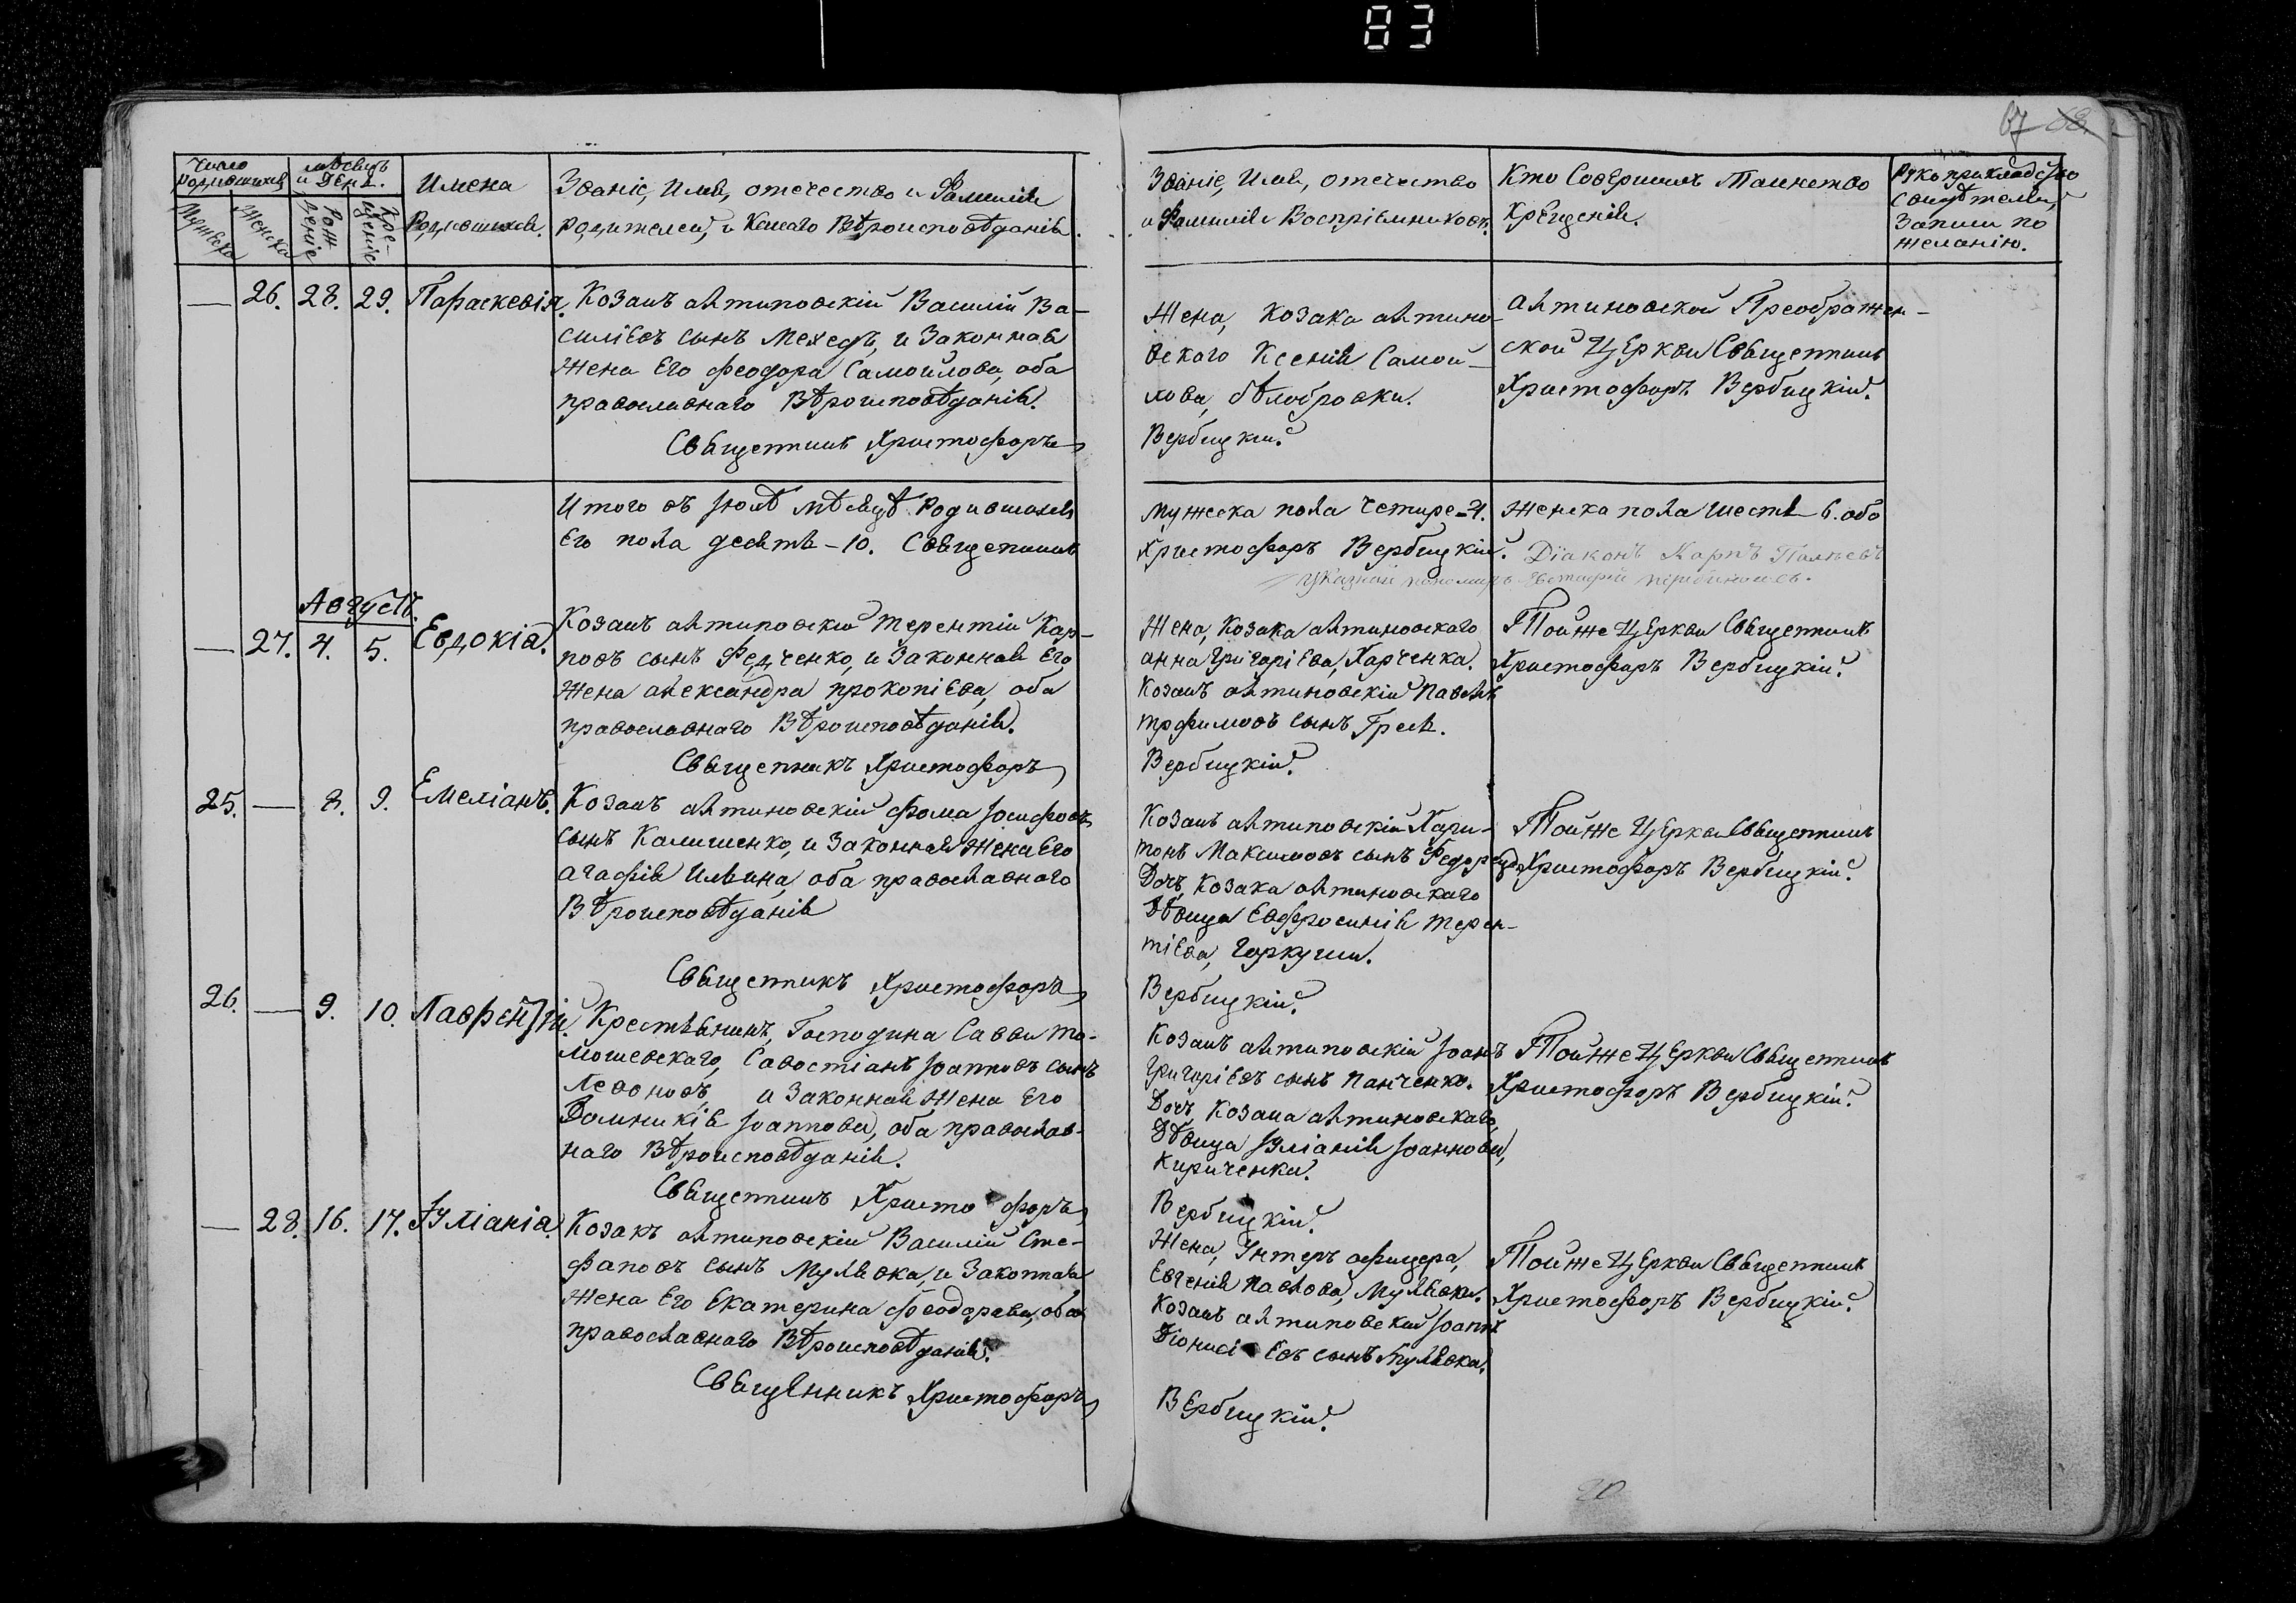 83
67 68
Число родившихся
мѣсяцъ и День.
Имена
Званіе, Имя, отечество и Фамилія
Мужеска
Женска
Рожденіе
Крещеніе
Родившихся.
родителей, и Какаго Вѣроисповѣданія.
Званіе, Имя, отечество
и Фамилія Воспріемниковъ.
Кто Совершилъ Таинство
Крещенія.
Рукоприкладство
Свидѣтелей,
Записи по
желанію.
— 26. 28. 29. Параскевія. Козакъ алтиновскій Василій Ва-
силіевъ сынъ Мехедъ, и Законная
жена Его Феодора Самойлова, оба
православнаго Вѣроисповѣданія.
Священникъ Христофоръ
Жена, Козака алтино-
вскаго Ксенія Самой-
лова, бѣлобровки.
Вербицкій.
Алтиновской Преображен-
ской Церкви Священникъ
Христофоръ Вербицкій.
Итого въ Іюлѣ мѣсяцѣ Родившихся
Его пола десять - 10. Священникъ
Мужеска пола Четире - 4.
Христофоръ Вербицкій.
Женска пола шесть 6. обо
Діаконъ Карпъ
указной пономарь Евстафій
Августъ.
— 27. 4. 5. Евдокія.
Козакъ алтиновскій Терентій Кар-
повъ сынъ Федченко, и Законная Его
жена Александра Прокопіева, оба
православнаго Вѣроисповѣданія.
Священникъ Христофоръ
Жена, Козака алтиновскаго
анна Григоріева, Харченка.
Козакъ алтиновскій Павелъ
трофимовъ сынъ Гресь.
Вербицкій.
Тойже Церкви Священникъ
Христофоръ Вербицкій.
25. — 8. 9. Емеліанъ.
Козакъ алтиновскій Фома Іосифовъ
сынъ Калишенко, и Законная Жена Его
агафія Ильина, оба православнаго
Вѣроисповѣданія
Священникъ Христофоръ
Козакъ алтиновскій Хари-
тонъ Максимовъ сынъ Федорецъ
Дочъ, Козака алтиновскаго
Дѣвица Евфросинія Терен-
тіева, Горкуши.
Вербицкій.
Тойже Церкви Священникъ
Христофоръ Вербицкій.
26. — 9. 10. Лаврентій.
Крестьянинъ, Господина Саввы То-
мошевскаго, Савостіанъ Іоанновъ сынъ
Леоновъ, и Законная Жена Его
Домникія Іоаннова, оба православ-
наго Вѣроисповѣданія.
Священникъ Христофоръ
Козакъ алтиновскій Іоанъ
Григоріевъ сынъ Панченко.
Дочъ, Козака алтиновскаго,
Дѣвица Іуліанія Іоаннова,
Кириченка.
Вербицкій.
Тойже Церкви Священникъ
Христофоръ Вербицкій.
— 28. 16. 17. Іуліанія.
Козакъ алтиновскій Василій Сте-
фановъ сынъ Мулявка, и Законная
жена Его Екатерина Феодорова, оба
православнаго Вѣроисповѣданія.
Священникъ Христофоръ
Жена, Унтеръ офицера,
Евгенія Павлова, Мулявки.
Козакъ алтиновскій Іоаннъ
Діонисіевъ сынъ Мулявка.
Вербицкій.
Тойже Церкви Священникъ
Христофоръ Вербицкій.